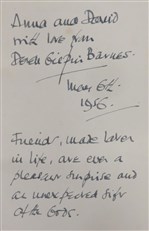 Anna and David
with love from
Derek Giepin Barnes.
May 6th.
1956.
Friends, made later
in life, are ever a
pleasant surprise and
an unexpected gift
of the Gods.